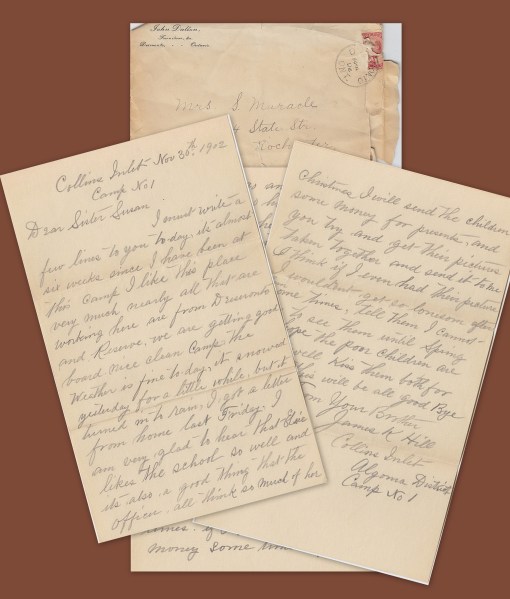 John Dalton,
Deseronto - - Ontario
Mrs. S Maracle
State Str.
Rochester
Collins Inlet Nov 30th 1902
Camp No 1
Dear Sister Susan
I must write a
few lines to you to day, it's almost
six weeks since I have been at
this Camp I like this place
very much nearly all that are
working here are from Deseronto
and Reserve, we are getting good
board nice clean Camp. the
Weather is fine to day, it snowed
yesterday for a little while, but it
turned into rain, I got a letter
from home last Friday. I
am very glad to hear that Elsie
likes the school so well and
its also a good thing that the
Officer all think so much of her
money some
Christmas I will send the children
some money for presents, and
you try and get their pictures
taken together and send it to me
I think if I even had their picture
I wouldn't get so lonesom often
some times, tell them I cannot
to see them until Spring
hope the poor children are
well Kiss them both for
this will be all Good Bye
from Your Brother
James K Hill
Collins Inlet
Algoma District
Camp No 1